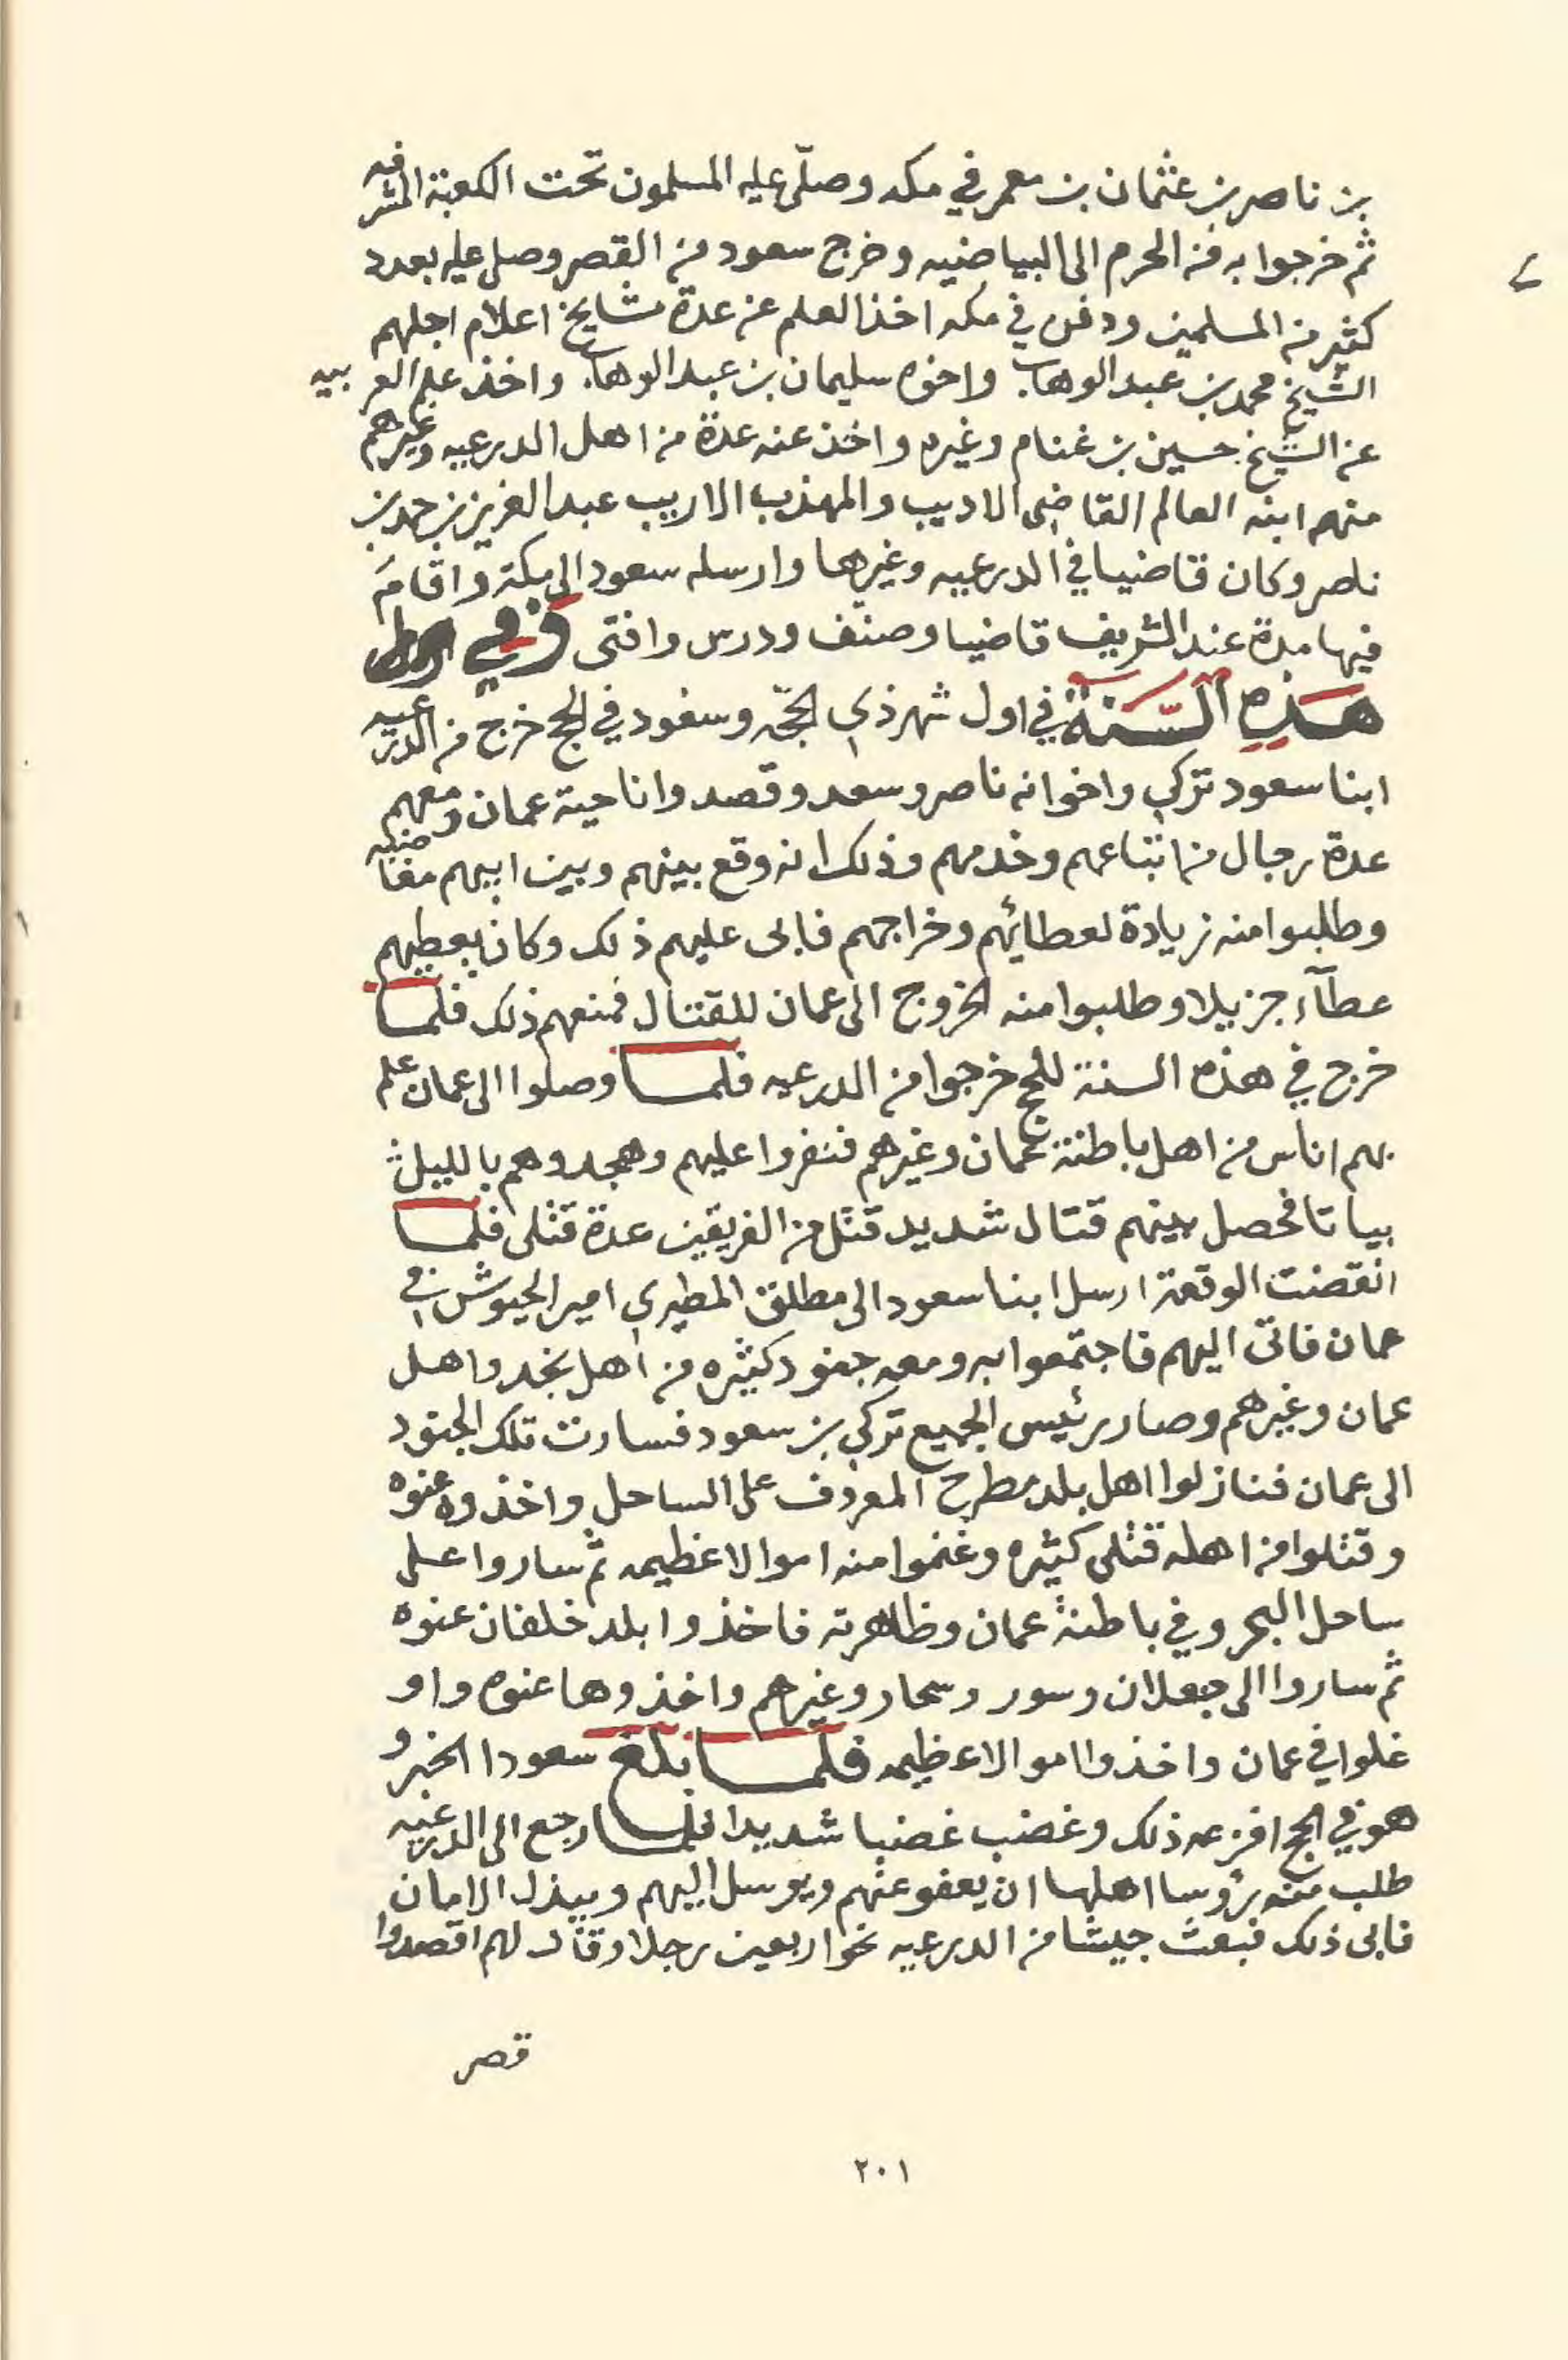 بن ناصر بن عثمان بن معمر في مكه وصلّى عليه المسلمون تحت الكعبة المشرفه
ثم خرجوا به من الحرم الى البياضيه وخرج سعود من القصر وصلى عليه بعدد
كثير من المسلمين ودفن في مكه اخذ العلم عن عدة مشايخ اعلام اجلهم
الشيخ محمد بن عبد الوهاب واخوه سليمان بن عبد الوهاب واخذ علم العربيه
عن الشيخ حسين بن غنام وغيره واخذ عنه عدة من اهل الدرعيه وغيرهم
منهم ابنه العالم القاضي الاديب والمهذب الاريب عبد العزيز بن حمد بن
ناصر وكان قاضيا في الدرعيه وغيرها وارسله سعود الى مكة واقام
فيها مدة عند الشريف قاضيا وصنف ودرس وافتى وفي
هذه السنة في اول شهر ذي الحجّه وسعود في الحج خرج من الدرعيه
ابنا سعود تركي واخوانه ناصر وسعد وقصدوا ناحية عمان ومعهم
عدة رجال من اتباعهم وخدمهم وذلك انه وقع بينهم وبين ابيهم مغاضبه
وطلبوا منه زيادة لعطائهم وخراجهم فابى عليهم ذلك وكان يعطيهم
عطآء جزيلا وطلبوا منه الخروج الى عمان للقتال فمنعهم ذلك فلما
خرج في هذه السنة للحج خرجوا من الدرعيه فلما وصلوا الى عمان علم
بهم اناس من اهل باطنة عمان وغيرهم فنفروا عليهم وهجدوهم بالليل
بياتا فحصل بينهم قتال شديد قتل من الفريقين عدة قتلى فلما
انقضت الوقعة ارسل ابنا سعود الى مطلق المطيري امير الجيوش في
عمان فاتى اليهم فاجتمعوا به ومعه جنود كثيره من اهل نجد واهل
عمان وغيرهم وصار رئيس الجميع تركي بن سعود فسارت تلك الجنود
الى عمان فنازلوا اهل بلد مطرح المعروف على الساحل واخذوه عنوه
وقتلوا من اهله قتلى كثيره وغنموا منه اموالا عظيمه ثم ساروا على
ساحل البحر وفي باطنة عمان وظاهرته فاخذوا بلد خلفان عنوه
ثم ساروا الى جعلان وسور وسحار وغيرهم واخذوها عنوه واو
غلوا في عمان واخذوا اموالا عظيمه فلما بلغ سعودا الخبر و
هو في الحج افزعه ذلك وغضب غضبا شديدا فلما رجع الى الدرعيه
طلب منه رؤسا اهلها ان يعفو عنهم ويرسل اليهم ويبذل الامان
فابى ذلك فبعث جيشا من الدرعيه نحو اربعين رجلا وقال لهم اقصدوا
قصر
٢٠١